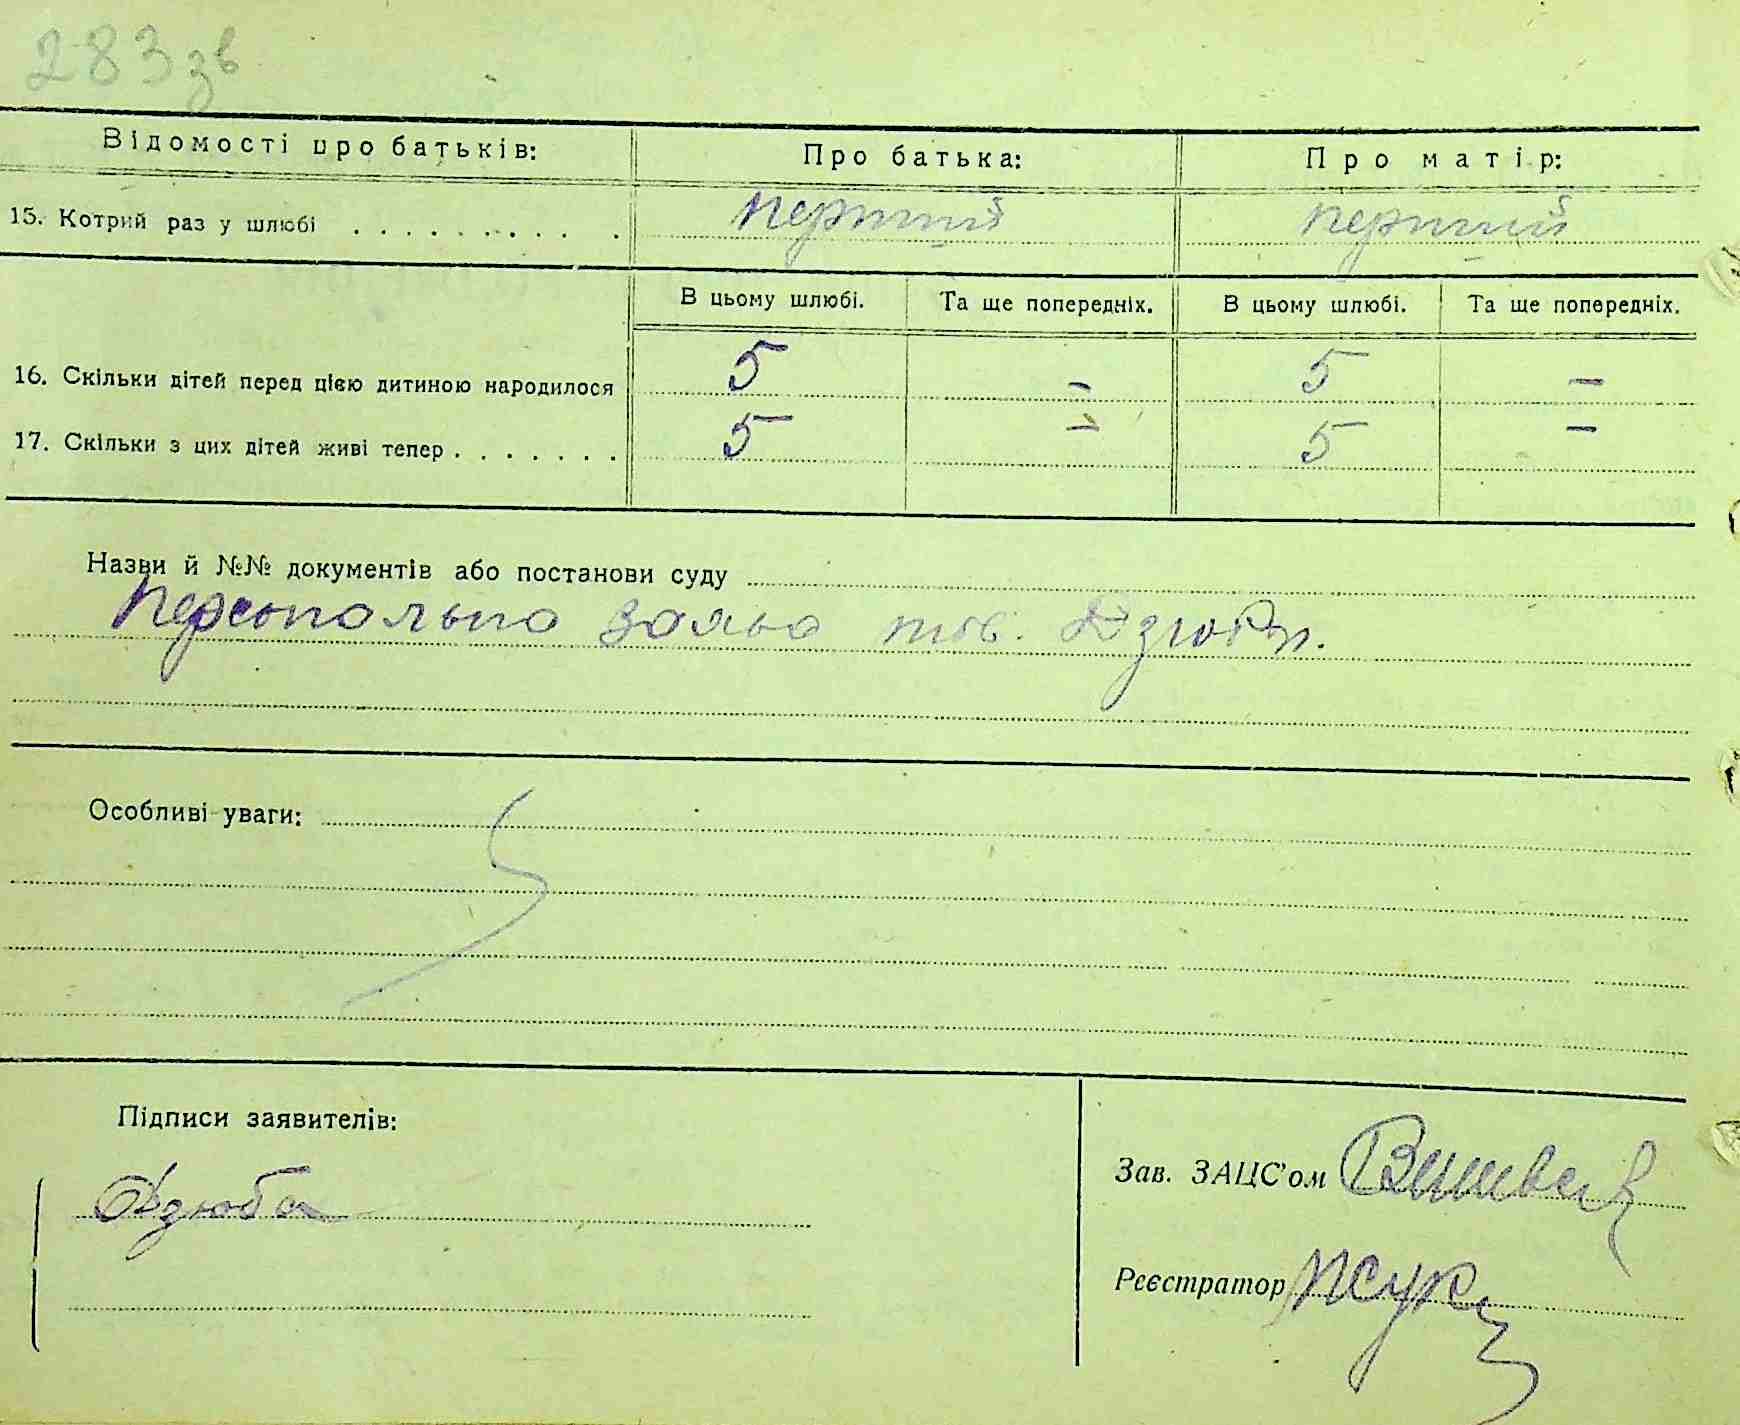 283зв
Відомості про батьків: Про батька: Про матір:
15. Котрий раз у шлюбі . . . . . . . . . . . перший перший
В цьому шлюбі. Та ще попередніх. В цьому шлюбі. Та ще попередніх.
16. Скільки дітей перед цією дитиною народилося 5 – 5 –
17. Скільки з цих дітей живі тепер . . . . . . . 5 – 5 –
Назви й №№ документів або постанови суду
Персонально заява тов. Дзюби.
Особливі уваги:
Підписи заявителів:
Дзюба
Зав. ЗАЦС'ом
Реєстратор Жук